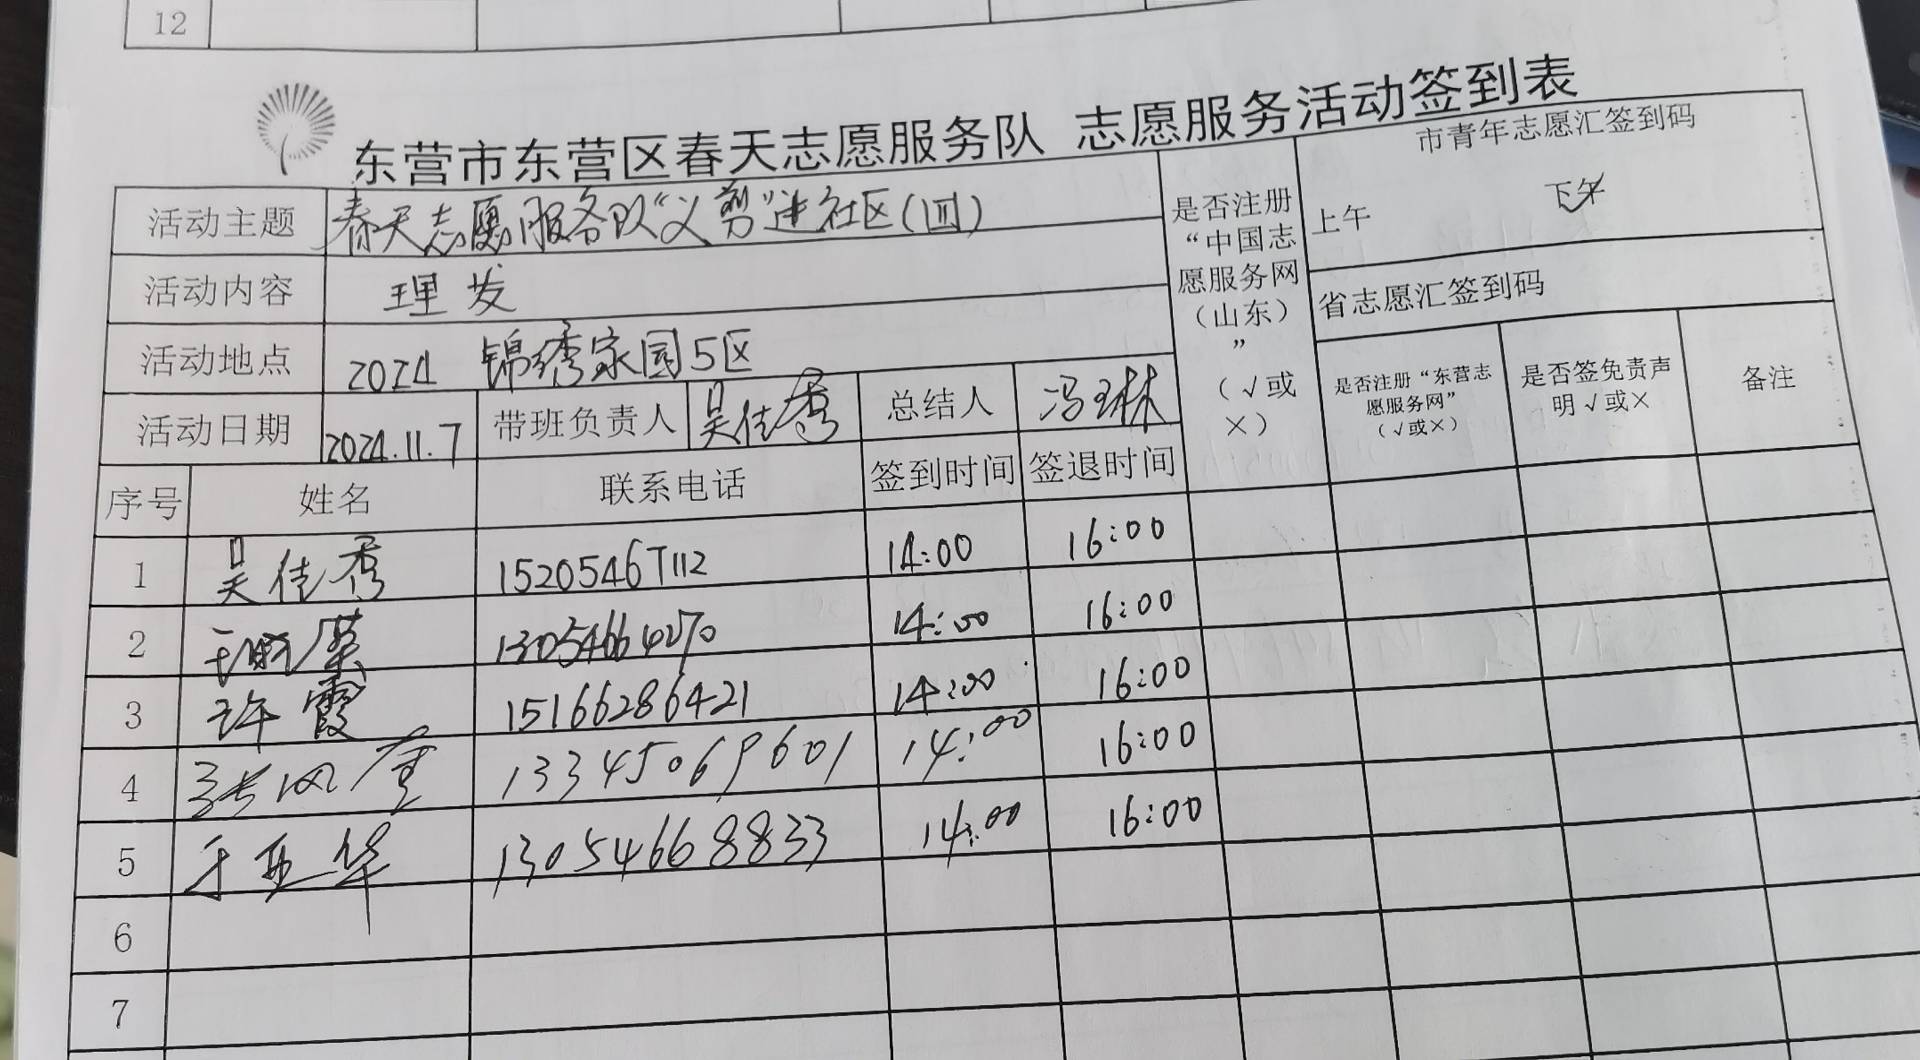 12
东营市东营区春天志愿服务队 志愿服务活动签到表
活动主题 春天志愿服务队“义剪”进社区(四)
是否注册“中国志愿服务网（山东）”（√或×）
市青年志愿汇签到码
上午 下午
活动内容 理发
省志愿汇签到码
活动地点 2024 锦绣家园5区
是否注册“东营志愿服务网”（√或×）
是否签免责声明√或×
备注
活动日期 2024.11.7 带班负责人 吴佳秀 总结人 冯玉林
序号 姓名 联系电话 签到时间 签退时间
1 吴佳秀 15205467112 14:00 16:00
2 13054664270 14:00 16:00
3 许霞 15166286421 14:00 16:00
4 张风 13345069601 14:00 16:00
5 于亚华 13054668833 14:00 16:00
6
7